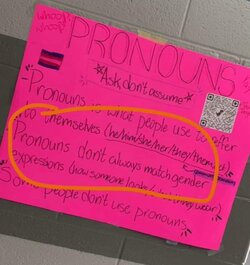 WHOOP
WHOOP
PRONOUNS
*Ask, don't assume*
Pronouns is what people use to refer
to themselves (he/him/she/her/they/them,
Pronouns don't always match gender
expressions (how someone looks/
Some people don't use pronouns